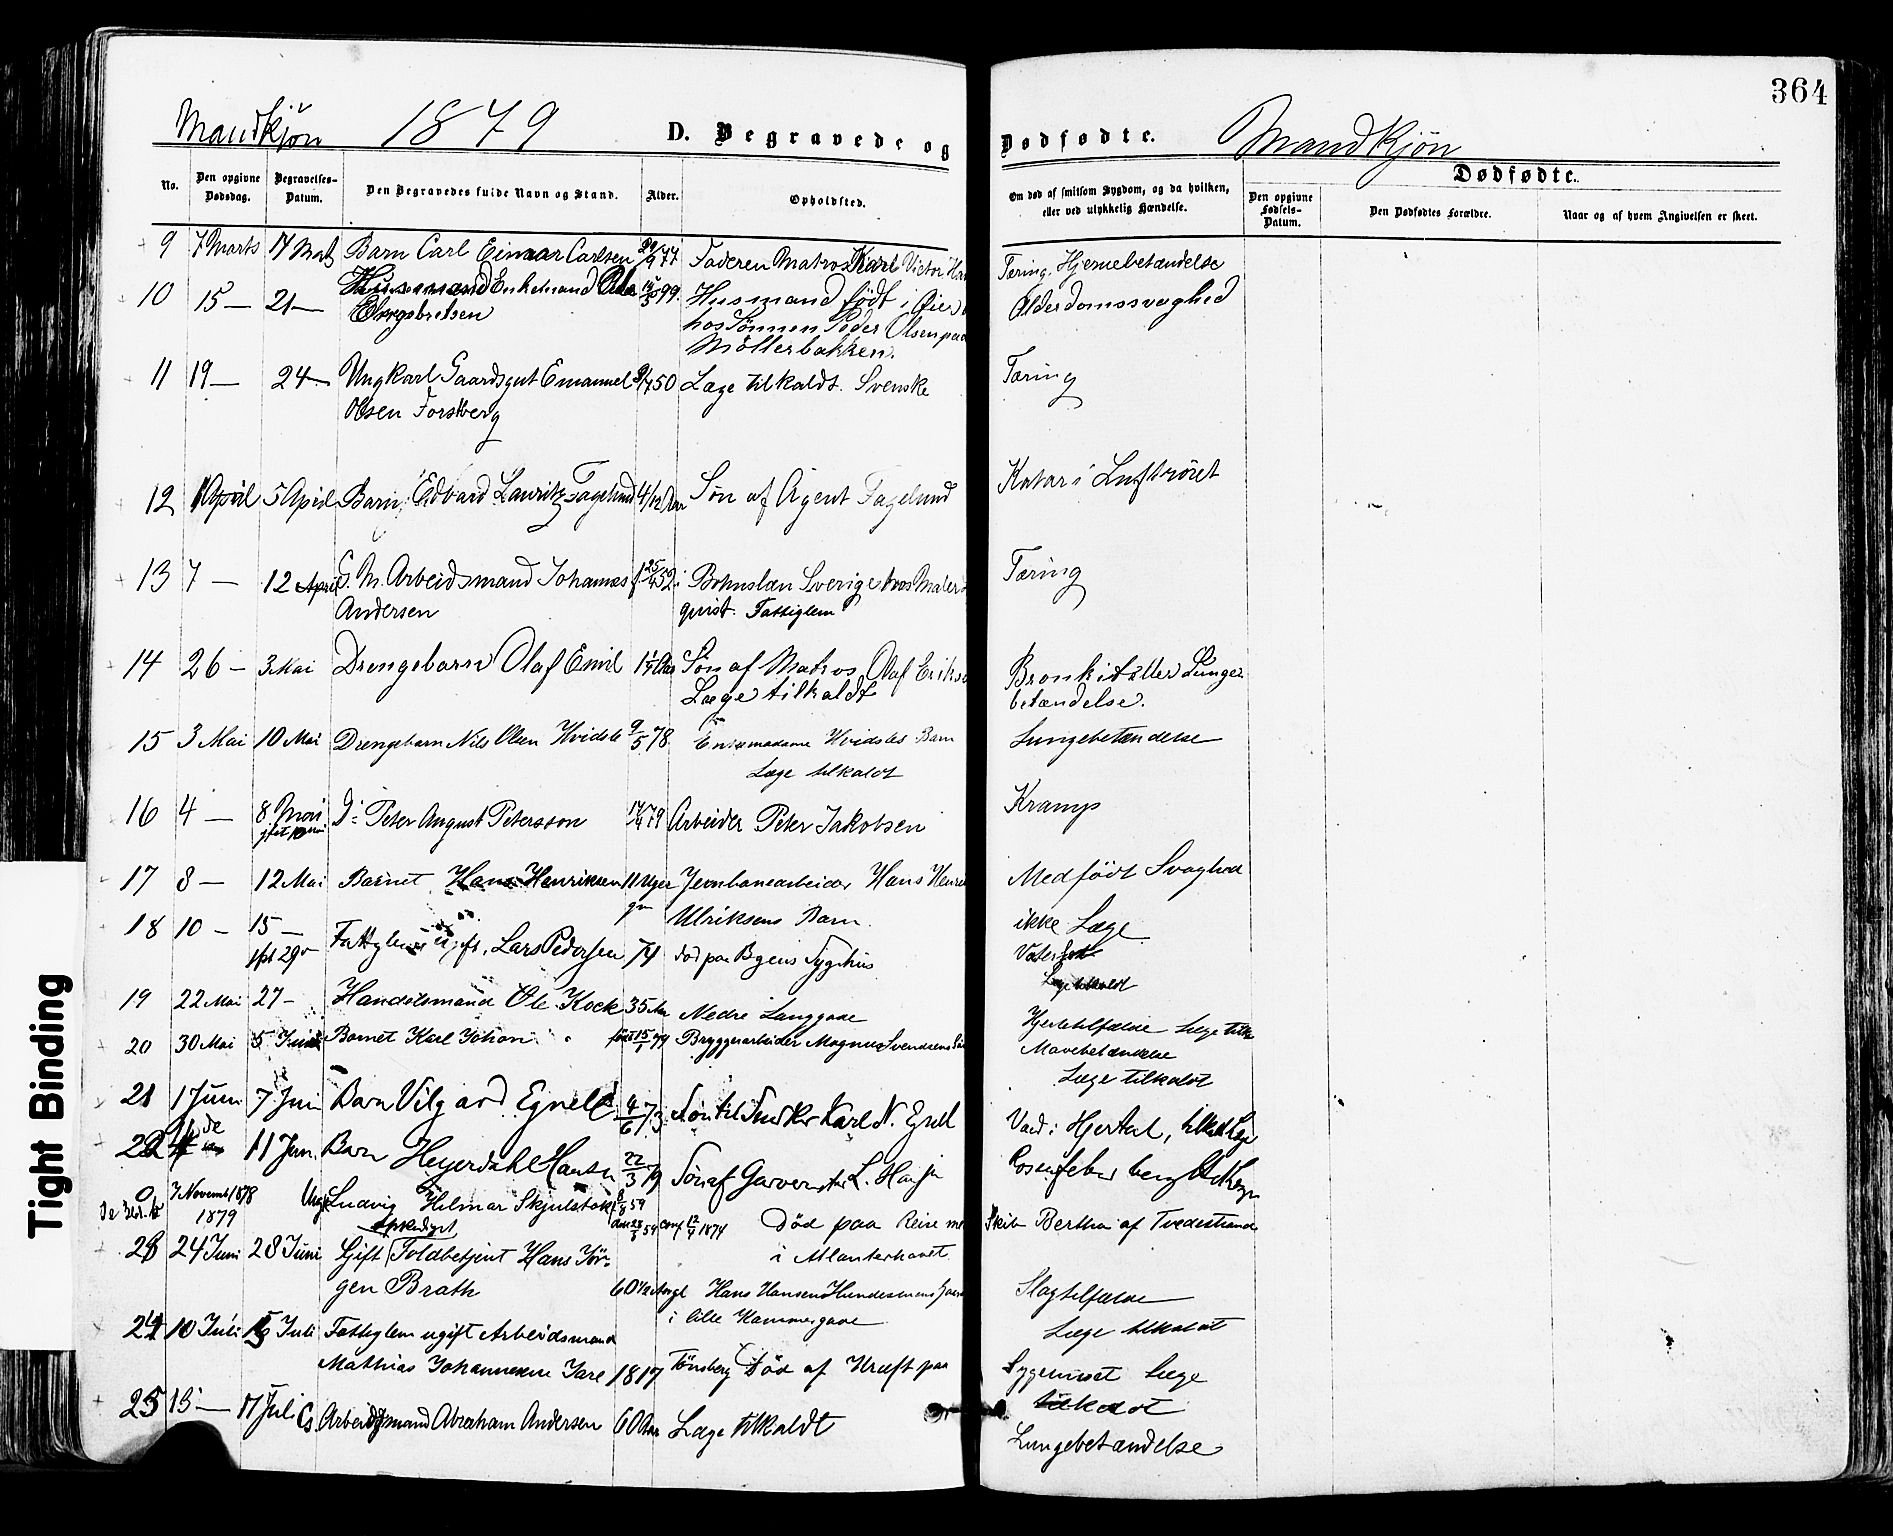 364
Mandkjön 1879 D. Begravede og Dødfødte. Mandkjön
No.
Den opgivne Dødsdag.
Begravelses-Datum.
Den Begravedes fulde Navn og Stand.
Alder.
Opholdsted.
Om død af smitsom Sygdom, og da hvilken, eller ved ulykkelig Hændelse.
Dødfødte.
Den opgivne Fødsels-Datum.
Den Dødfødtes Forældre.
Naar og af hvem Angivelsen er skeet.
9 7 Marts 14 Marts Barn Carl Einaar Carlsen 77 Faderen Matros Karl Victor Tæring, Hjernebetændelse
10 15 — 21 — Enkemand Alderdomssvaghed
Engebretsen 99. Husmand født i
hos Sønnen Peder Olsen paa
Möllerbakken.
11 19 — 24 — Ungkarl Gaardsgut Emanuel 50 Læge tilkaldt. Svenske Tæring
Olsen Forsberg
12 1 April 5 April Barn, Edvard Lauritz Fagelund 4/12 Aar Søn af Agent Fagelund Katar i Luftrøret
13 7 — 12 April G. M. Arbeidsmand Johannes f 25/4 52. Bohuslæn Sverige hos Maler Tæring
Andersen quist. Fattiglem
14 26 — 3 Mai Drengebarn Olaf Emil 1 1/4 Aar Søn af Matros Olaf Eriks Bronkit eller Lunge
Læge tilkaldt betændelse.
15 3 Mai 10 Mai Drengebarn Nils Olsen Hvidsle 9/5 78 Hvidsles Barn Lungebetændelse
Læge tilkaldt
16 4 — 8 Mai D: Peter August Petersson 17/4 79 Arbeider Peter Jakobsen Kramp
17 8 — 12 Mai Barnet Hans Henriksen 11 Uger Jernbanearbeider Hans Henrik Medfødt Svaghed
gm Ulriksens Barn ikke Læge
18 10 — 15 — Fattiglem ugift, Lars Pedersen 74 død paa Byens Sygehus Vatersot
Læge tilkaldt
19 22 Mai 27 — Handelsmand Ole Kock 35 Aar Nedre Langgade Hjertetilfælde Læge tilk
20 30 Mai 5 Juni Barnet Karl Johan født 15/1 79 Bryggerarbeider Magnus Svendsens Søn Mavebetændelse
Læge tilkaldt
21 1 Juni 7 Juni Barn Vilgard Egnell 4/6 73 Søn til Snedker Karl N. Egnell
22 11 Juni Barn Heyerdahl Hansen 22/3 79 Søn af Garver L. Hansen Rosenfeber
0 7 Novemb 1878 Ungk Ludvig Hilmar Skjulstok 8/4 59
1879 conf 1874 Død paa Reise m Skib Bertha af Tvedestrand
i Atlanterhavet
23 24 Juni 28 Juni Gift Toldbetjent Hans Jör-
gen Brath 60 1/2 Aar Hans Hansen Slagtilfælde
i lille Hammergade Læge tilkaldt
24 10 Juli 15 Juli Fattiglem ugift Arbeidsmand
Mathias Johannesen Jare 1817 Tönsberg Död af Kræft paa Sygehuset Læge
tilkaldt
25 13 — 17 Juli Gs Arbeidsmand Abraham Andersen 60 Aar Læge tilkaldt Lungebetændelse
Tight Binding